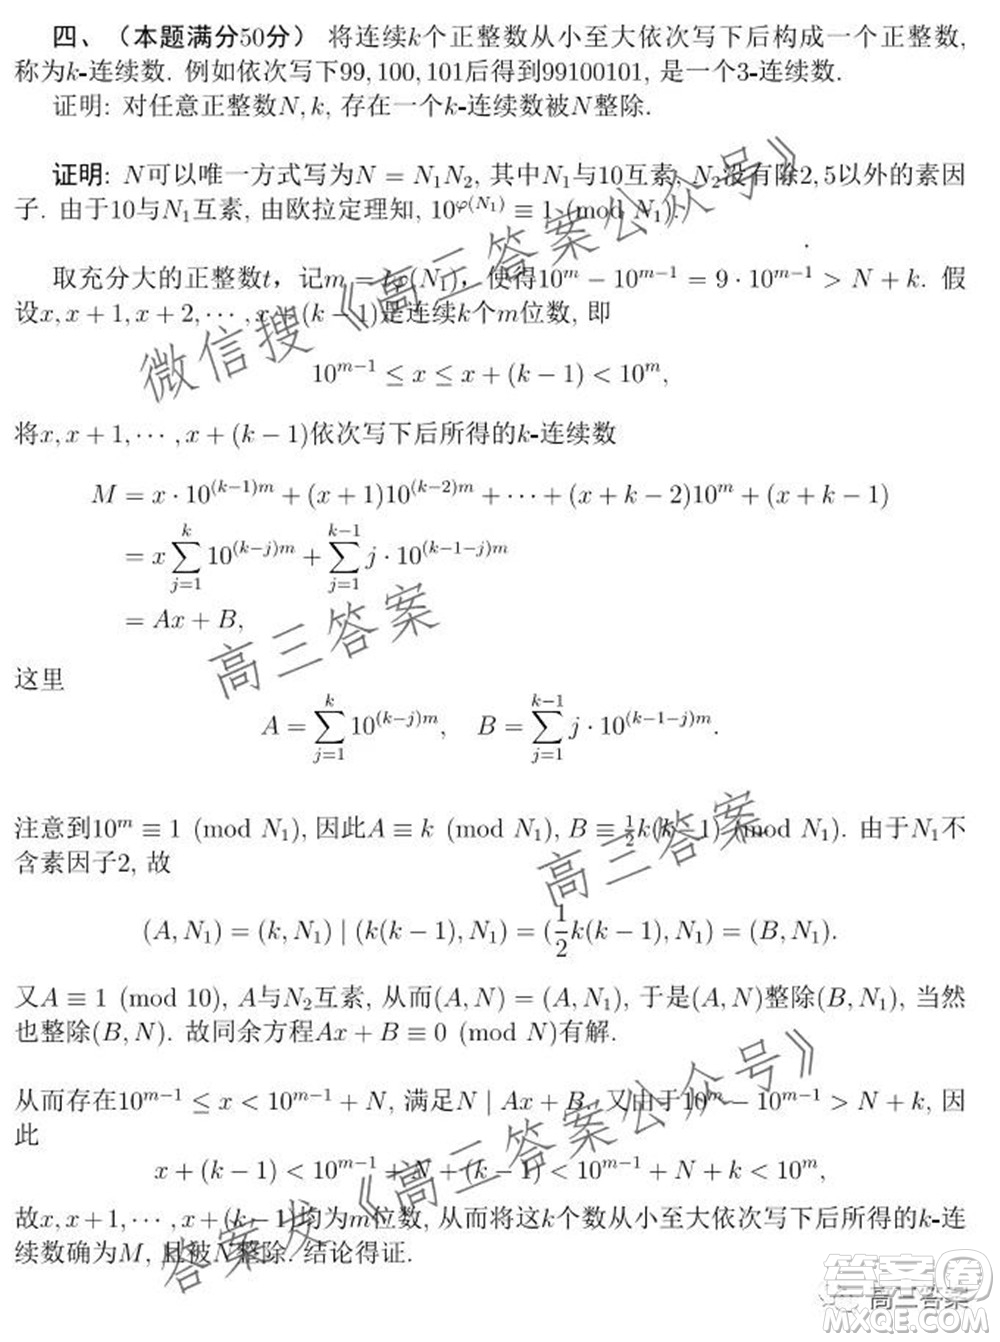 四、（本题满分50分）将连续k个正整数从小至大依次写下后构成一个正整数,
称为k-连续数. 例如依次写下99, 100, 101后得到99100101, 是一个3-连续数.
证明: 对任意正整数N, k, 存在一个k-连续数被N整除.
证明: N可以唯一方式写为N = N₁N₂, 其中N₁与10互素, N₂没有除2, 5以外的素因
子. 由于10与N₁互素, 由欧拉定理知, 10^{φ(N₁)} ≡ 1 (mod N₁).
取充分大的正整数t，记m = tφ(N₁)，使得10^{m−1} − 10^{m−1} = 9 · 10^{m−1} > N + k. 假
设x, x + 1, x + 2, ⋯ , x + (k − 1)是连续k个m位数, 即
10^{m−1} ≤ x ≤ x + (k − 1) < 10^m,
将x, x + 1, ⋯ , x + (k − 1)依次写下后所得的k-连续数
M = x · 10^{(k−1)m} + (x + 1)10^{(k−2)m} + ⋯ + (x + k − 2)10^m + (x + k − 1)
= x∑_{j=1}^{k} 10^{(k−j)m} + ∑_{j=1}^{k−1} j · 10^{(k−1−j)m}
= Ax + B,
这里
A = ∑_{j=1}^{k} 10^{(k−j)m}, B = ∑_{j=1}^{k−1} j · 10^{(k−1−j)m}.
注意到10^m ≡ 1 (mod N₁), 因此A ≡ k (mod N₁), B ≡ ½k(k − 1) (mod N₁). 由于N₁不
含素因子2, 故
(A, N₁) = (k, N₁) | (k(k − 1), N₁) = (½k(k − 1), N₁) = (B, N₁).
又A ≡ 1 (mod 10), A与N₂互素, 从而(A, N) = (A, N₁), 于是(A, N)整除(B, N₁), 当然
也整除(B, N). 故同余方程Ax + B ≡ 0 (mod N)有解.
从而存在10^{m−1} ≤ x < 10^{m−1} + N, 满足N | Ax + B. 又由于10^m − 10^{m−1} > N + k, 因
此
x + (k − 1) < 10^{m−1} + N + (k − 1) < 10^{m−1} + N + k < 10^m,
故x, x + 1, ⋯ , x + (k − 1)均为m位数, 从而将这k个数从小至大依次写下后所得的k-连
续数确为M, 且被N整除. 结论得证.
微信搜《高三答案公众号》
高三答案
高三答案
答案发《高三答案公众号》
高三答案
答案圈
MXQE.COM